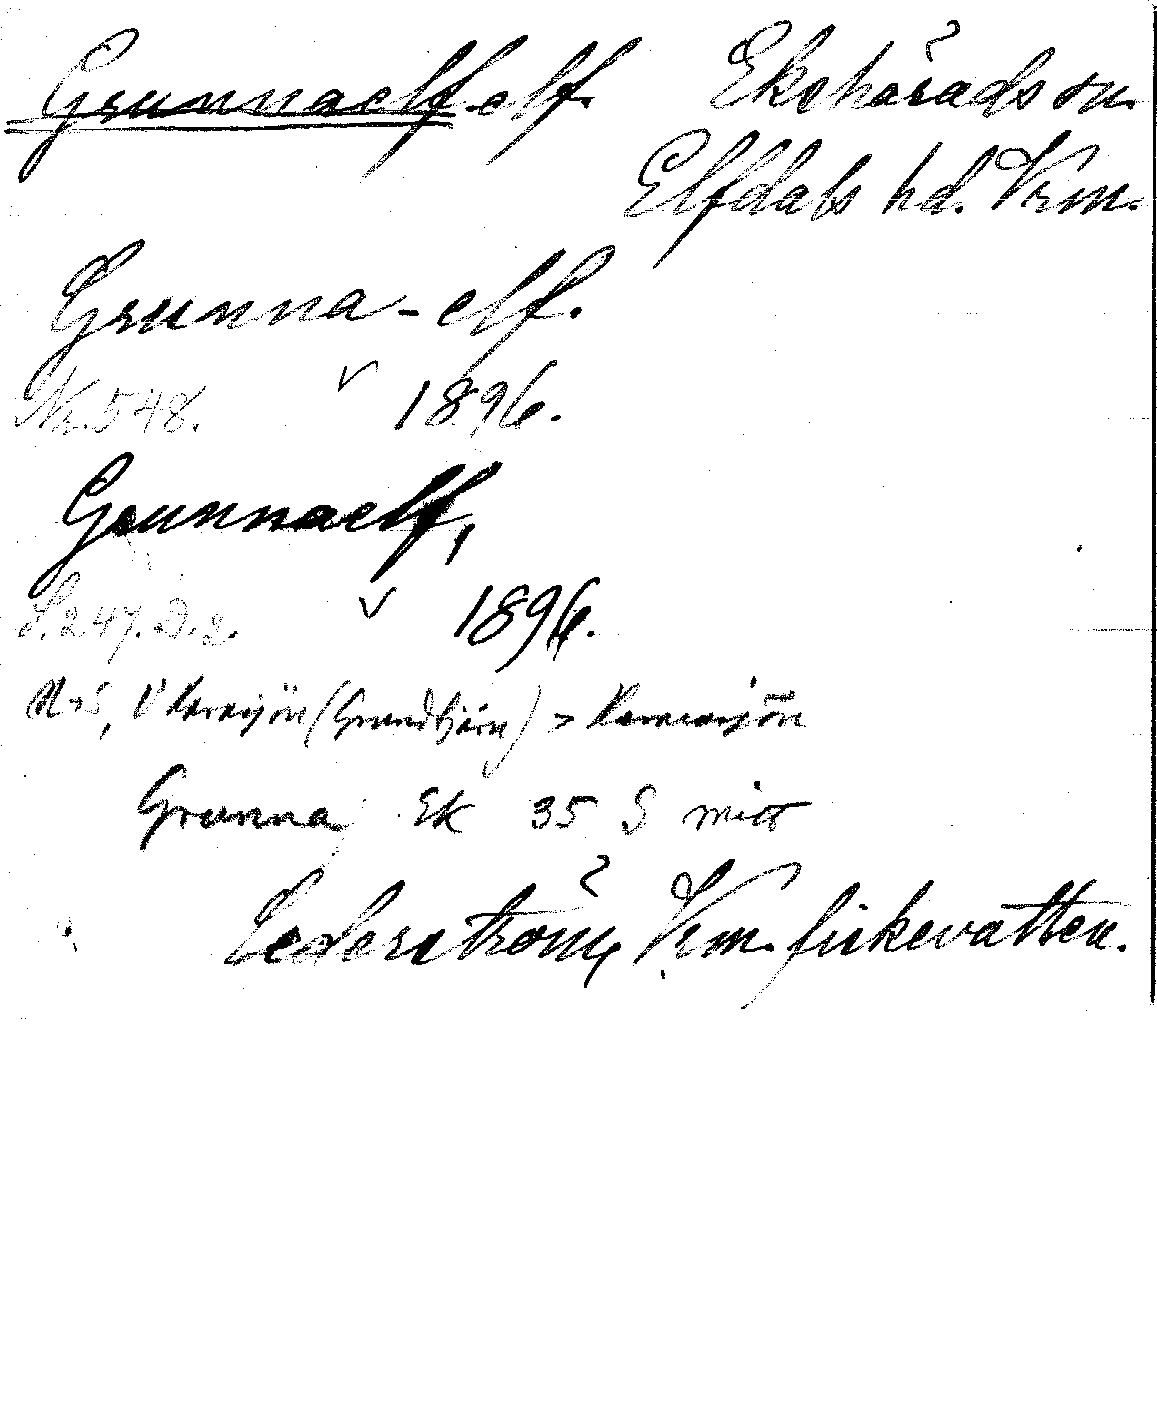 Grunnaelf-elf. Ekshärads sn.
Elfdals hd. Vrm.
Grunna-elf.
Nr. 548. v 1896.
Grunnaelf,
S. 247. D. 2. v 1896.
(Grundtjärn) >
Grunna Ek 35 S mitt
Cederström, Vrm. fiskevatten.